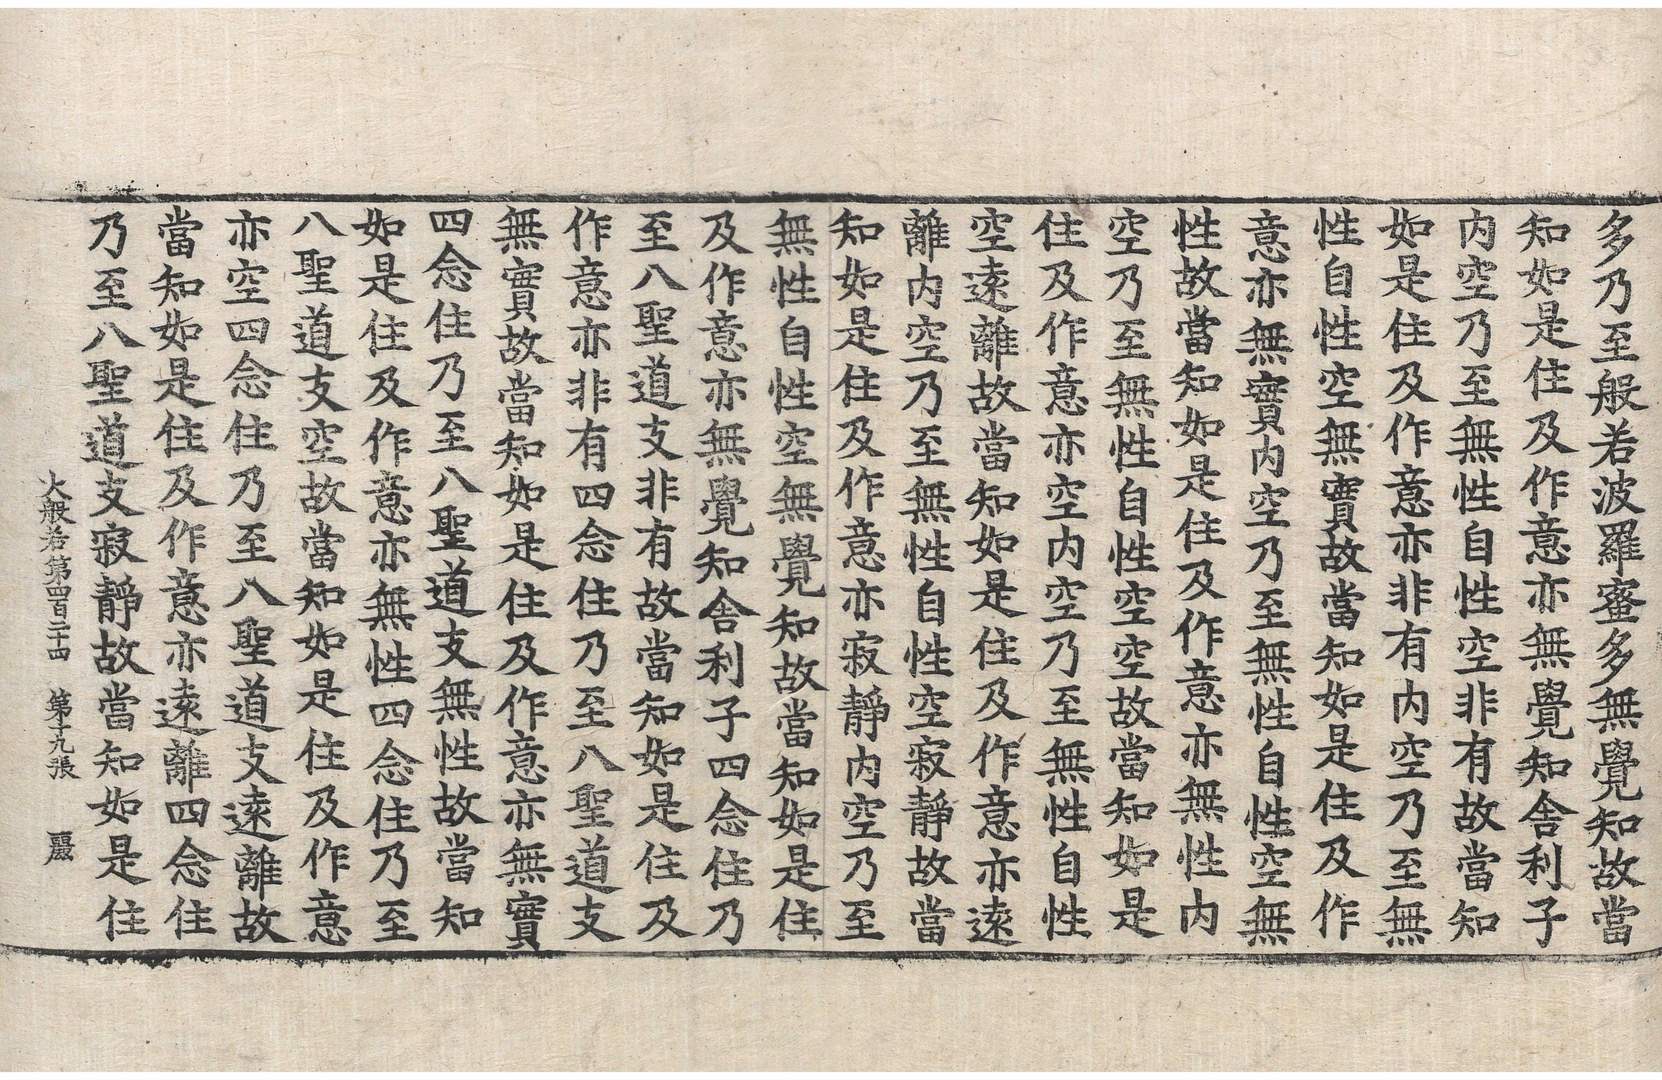 多乃至般若波羅蜜多無覺知故當
知如是住及作意亦無覺知舍利子
内空乃至無性自性空非有故當知
如是住及作意亦非有内空乃至無
性自性空無實故當知如是住及作
意亦無實内空乃至無性自性空無
性故當知如是住及作意亦無性内
空乃至無性自性空空故當知如是
住及作意亦空内空乃至無性自性
空遠離故當知如是住及作意亦遠
離内空乃至無性自性空寂靜故當
知如是住及作意亦寂靜内空乃至
無性自性空無覺知故當知如是住
及作意亦無覺知舍利子四念住乃
至八聖道支非有故當知如是住及
作意亦非有四念住乃至八聖道支
無實故當知如是住及作意亦無實
四念住乃至八聖道支無性故當知
如是住及作意亦無性四念住乃至
八聖道支空故當知如是住及作意
亦空四念住乃至八聖道支遠離故
當知如是住及作意亦遠離四念住
乃至八聖道支寂靜故當知如是住
大般若第四百二十四 第十九張 麗